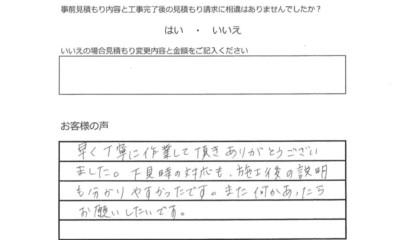 事前見積もり内容と工事完了後の見積もり請求に相違はありませんでしたか?
はい ・ いいえ
いいえの場合見積もり変更内容と金額をご記入ください
お客様の声
早く丁寧に作業して頂きありがとうござい
ました。下見時の対応も、施工後の説明
も分かりやすかったです。また何かあったら
お願いしたいです。